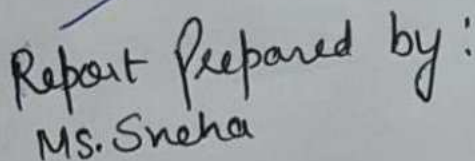 Report Prepared by:
Ms. Sneha